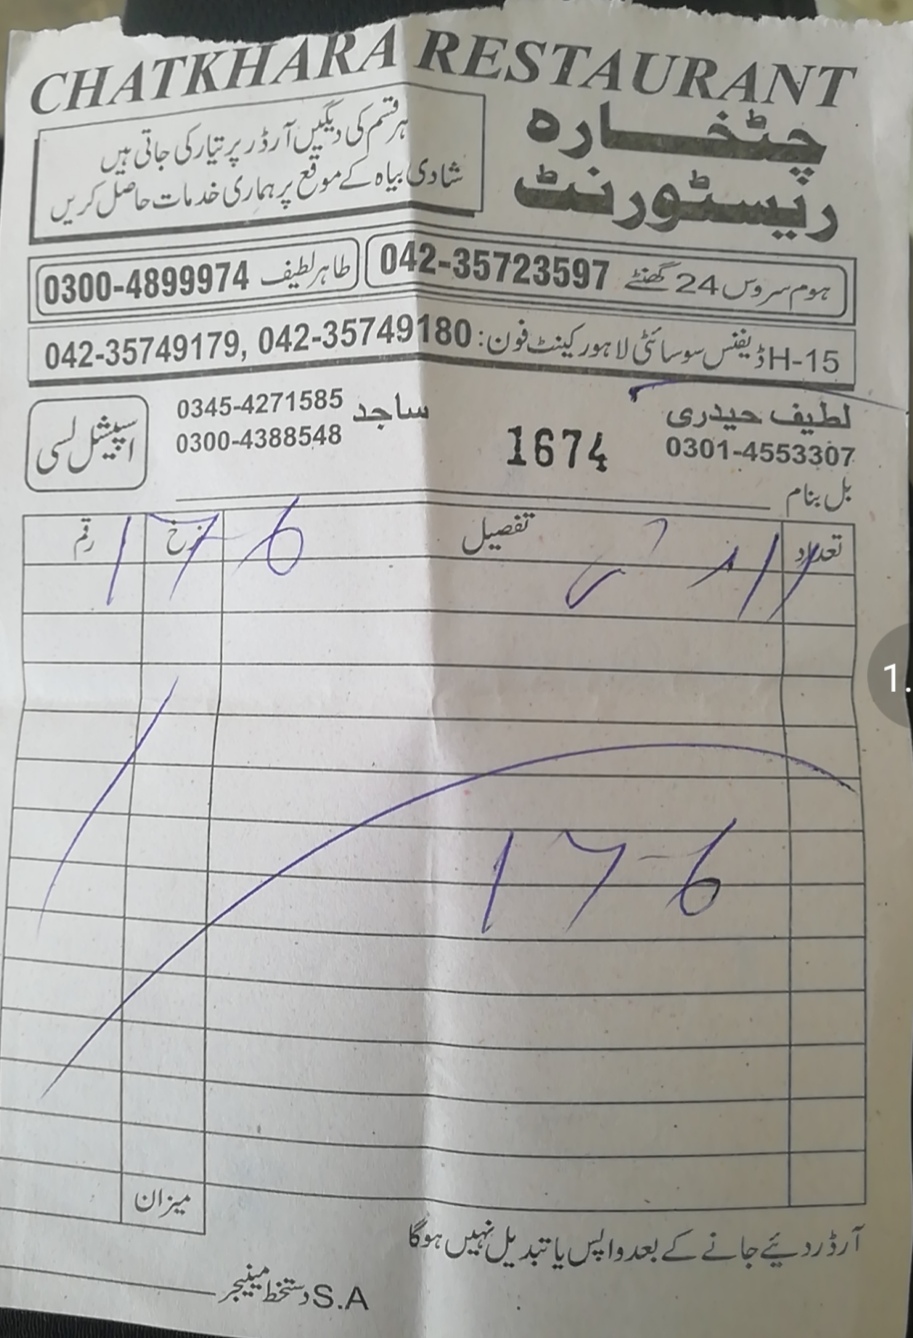 CHATKHARA RESTAURANT
چٹخارہ
ریسٹورنٹ
ہر قسم کی دیگیں آرڈر پر تیار کی جاتی ہیں
شادی بیاہ کے موقع پر ہماری خدمات حاصل کریں
ہوم سروس 24 گھنٹے 042-35723597
طاہر لطیف 0300-4899974
H-15 ڈیفنس سوسائٹی لاہور کینٹ فون: 042-35749180, 042-35749179
لطیف حیدری
0301-4553307
1674
ساجد 0345-4271585
0300-4388548
اسپیشل لسی
بل بنام
تعداد تفصیل نرخ رقم
176
176
میزان
آرڈر دیئے جانے کے بعد واپس یا تبدیل نہیں ہوگا
S.A دستخط مینیجر
1.